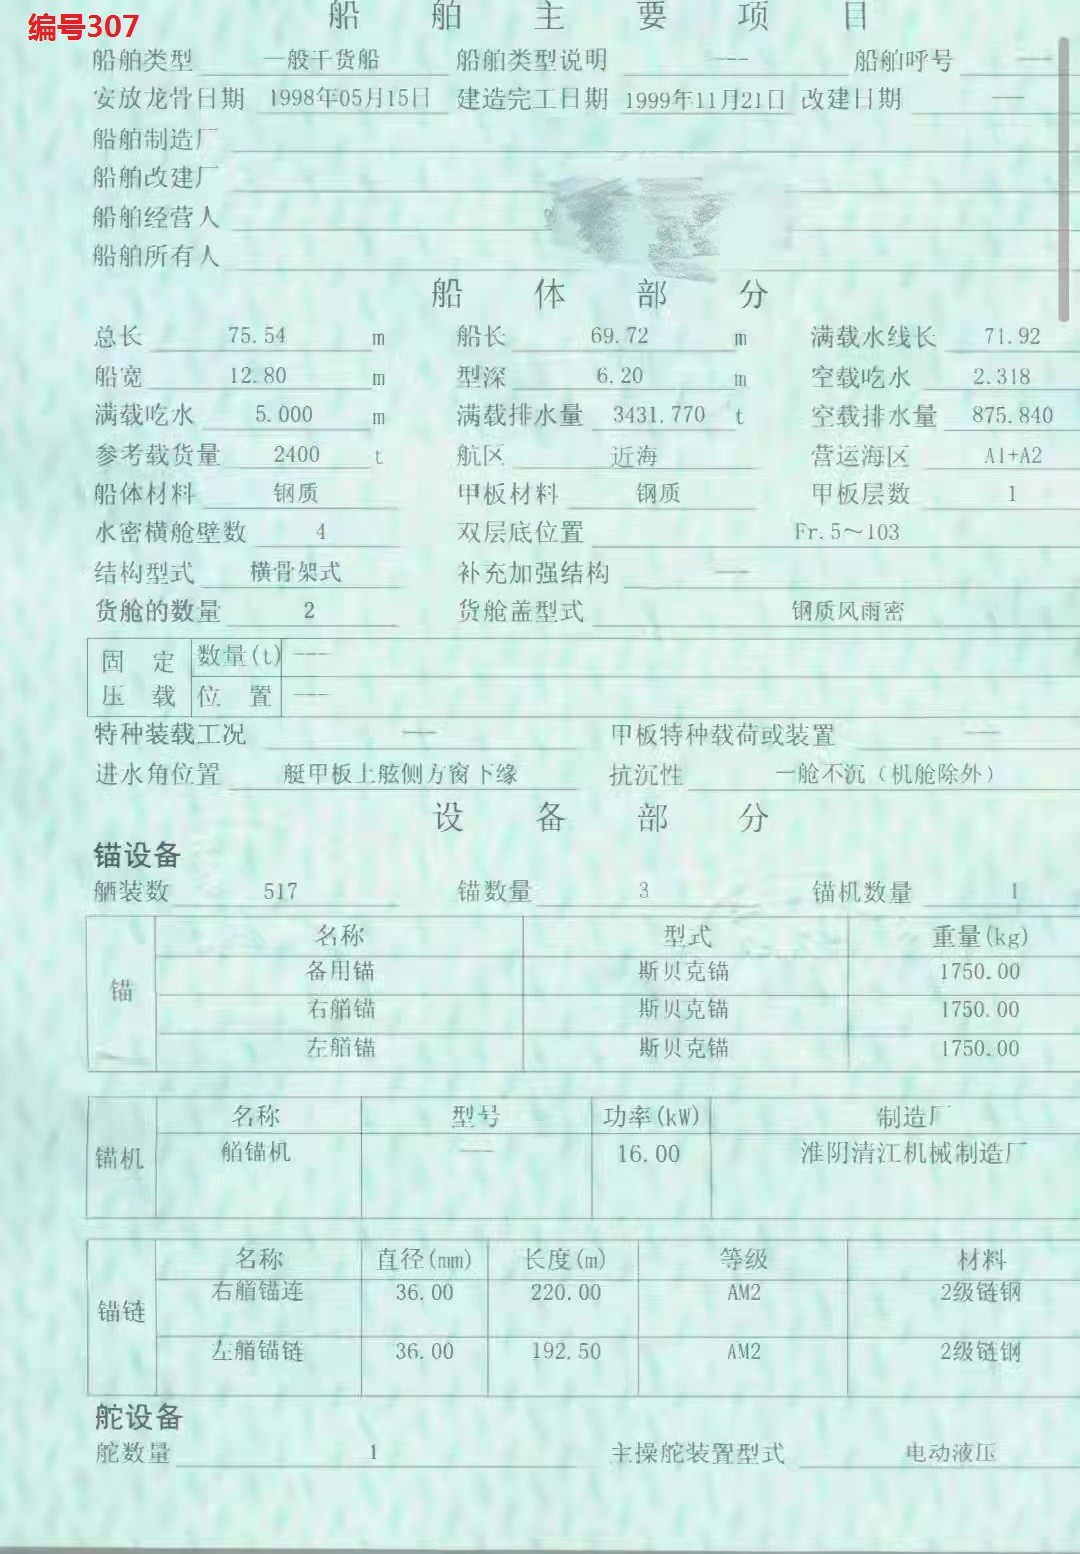 编号307
船舶主要项目
船舶类型 一般干货船 船舶类型说明 --- 船舶呼号 ---
安放龙骨日期 1998年05月15日 建造完工日期 1999年11月21日 改建日期 ---
船舶制造厂
船舶改建厂
船舶经营人
船舶所有人
船体部分
总长 75.54 m 船长 69.72 m 满载水线长 71.92
船宽 12.80 m 型深 6.20 m 空载吃水 2.318
满载吃水 5.000 m 满载排水量 3431.770 t 空载排水量 875.840
参考载货量 2400 t 航区 近海 营运海区 A1+A2
船体材料 钢质 甲板材料 钢质 甲板层数 1
水密横舱壁数 4 双层底位置 Fr.5～103
结构型式 横骨架式 补充加强结构 ---
货舱的数量 2 货舱盖型式 钢质风雨密
固定 数量(t) ---
压载 位置 ---
特种装载工况 --- 甲板特种载荷或装置 ---
进水角位置 艇甲板上舷侧方窗下缘 抗沉性 一舱不沉（机舱除外）
设备部分
锚设备
舾装数 517 锚数量 3 锚机数量 1
锚
名称 型式 重量(kg)
备用锚 斯贝克锚 1750.00
右艏锚 斯贝克锚 1750.00
左艏锚 斯贝克锚 1750.00
锚机
名称 型号 功率(kW) 制造厂
艏锚机 --- 16.00 淮阴清江机械制造厂
锚链
名称 直径(mm) 长度(m) 等级 材料
右艏锚连 36.00 220.00 AM2 2级链钢
左艏锚链 36.00 192.50 AM2 2级链钢
舵设备
舵数量 1 主操舵装置型式 电动液压